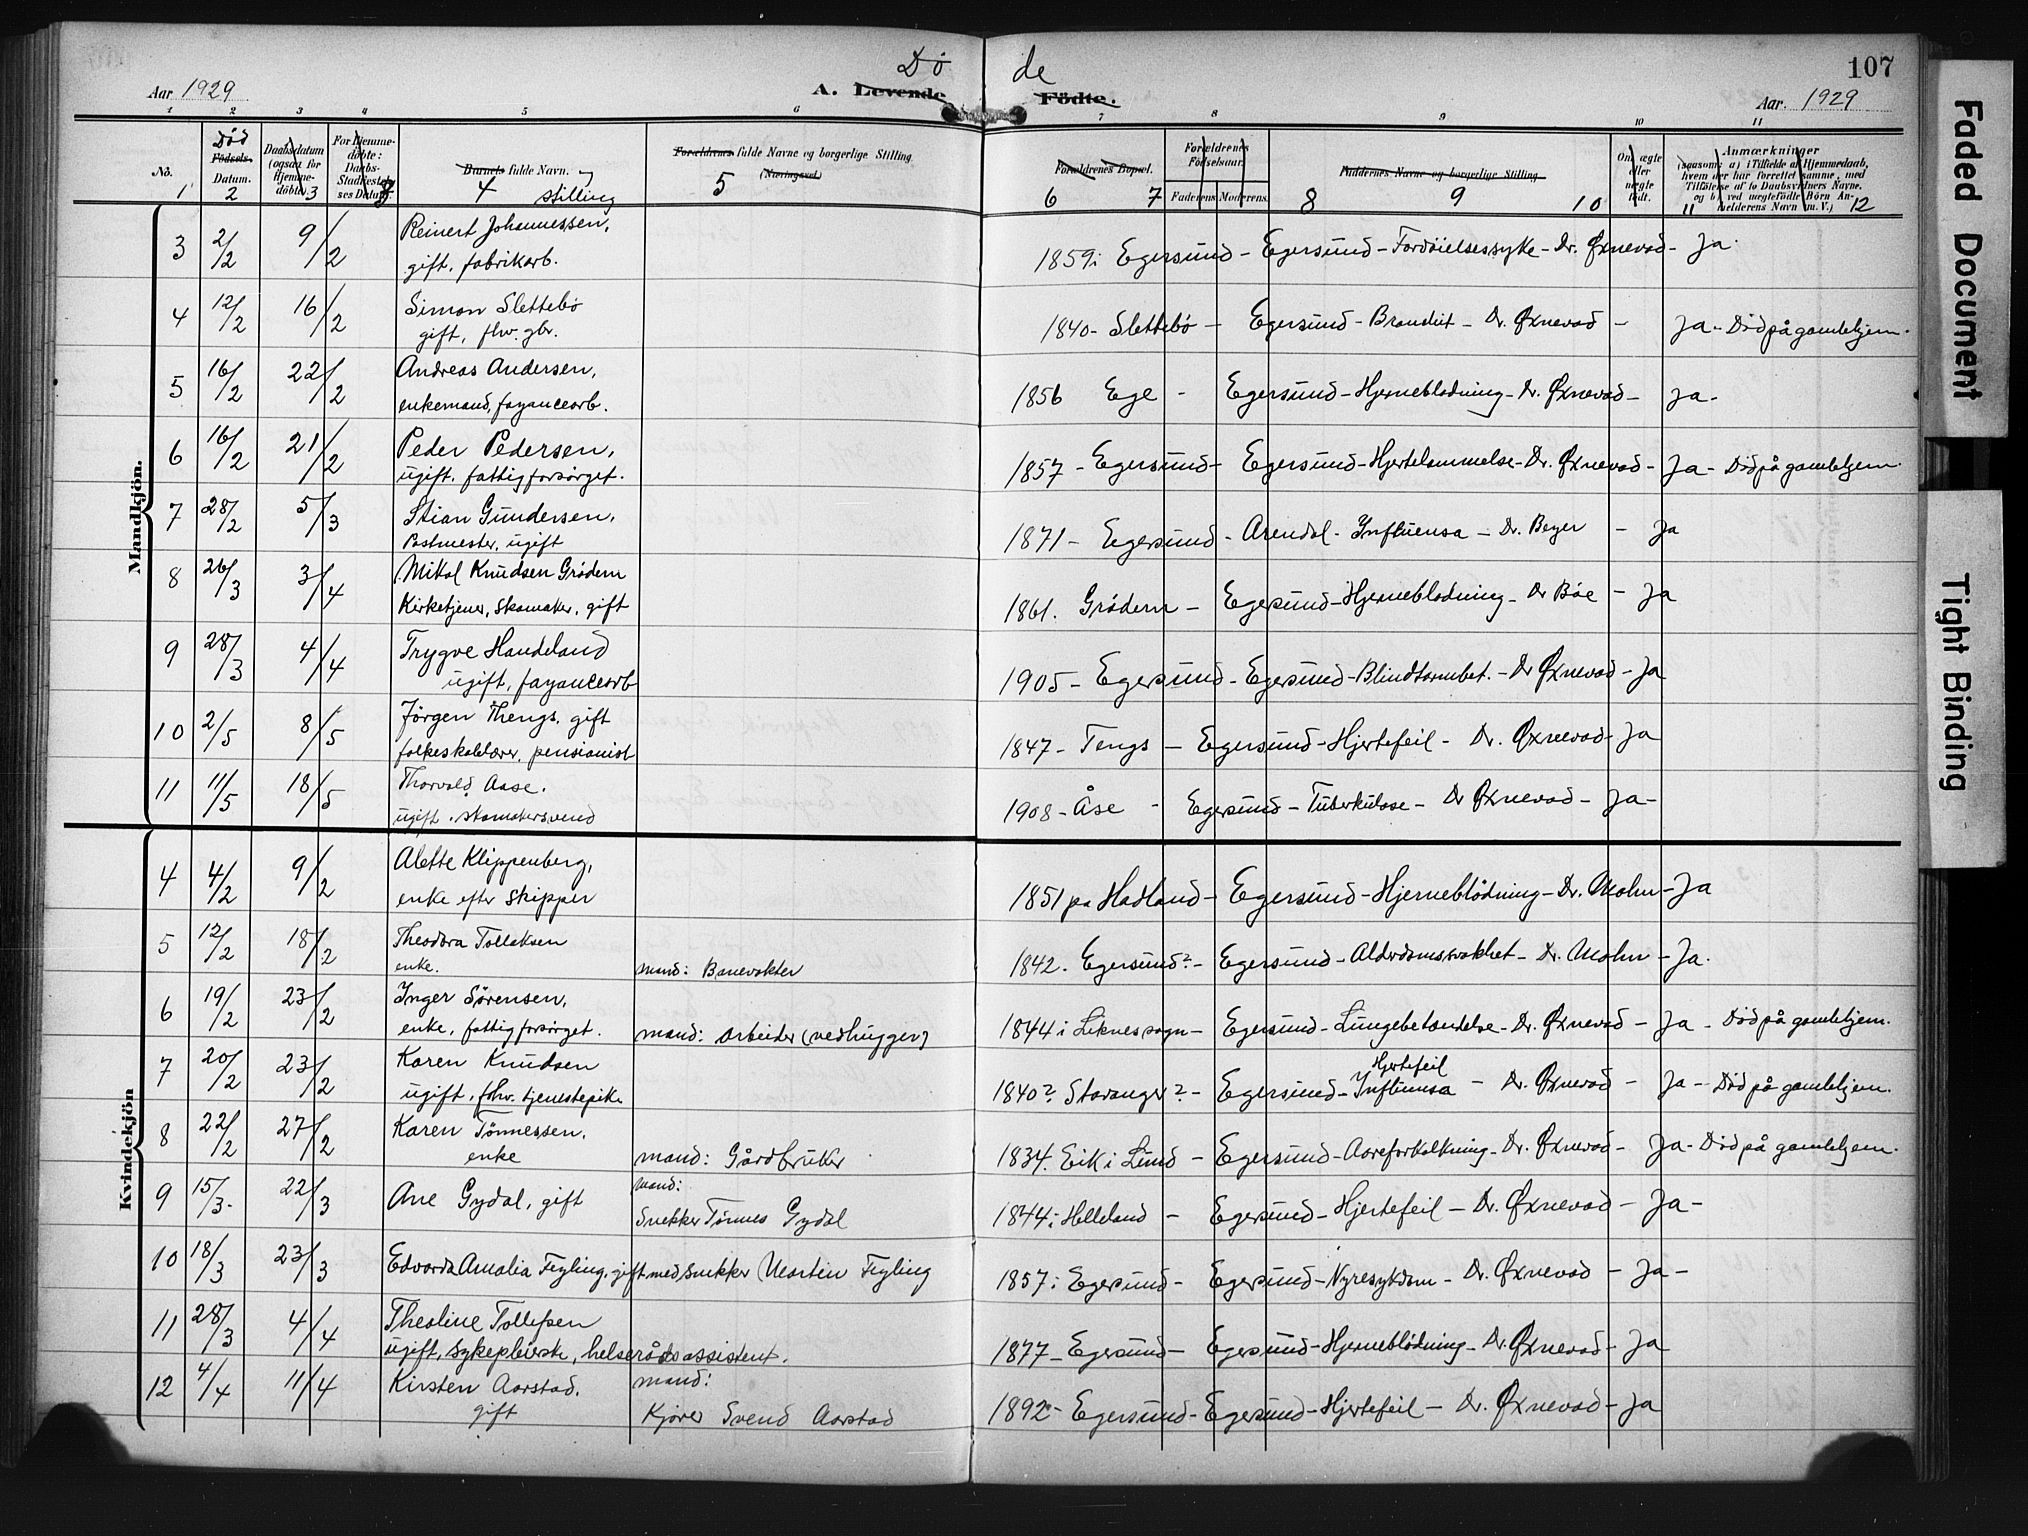 Dö de
107
Aar 1929
A. Levende
Födte.
Aar. 1929
1 2 3 4 5 6 7 8 9 10 11
No.
1
Död
Födsels-
Datum.
2
Daabsdatum
(ogsaa for
Hjemme-
döbte).
3
For Hjemme-
döbte:
Daabs-
Stadfæstel-
ses Datum.
Barnets fulde Navn.
4 stilling
Forældrenes fulde Navne og borgerlige Stilling
(Næringsvei)
5
Forældrenes Bopæl.
6 7
Forældrenes
Födselsaar.
Faderens Moderens.
Faddernes Navne og borgerlige Stilling
8 9 10
Om ægte
eller
uægte
födt.
Anmærkninger
(saasom: a) i Tilfælde af Hjemmedaab,
hvem der har forrettet samme, med
Tilföielse af to Daabsvidners Navne,
og b) ved uægtefödte Börn An-
melderens Navn m. V.)
11 12
Mandkjön.
3 2/2 9/2 Reinert Johannessen,
gift. fabrikarb.
1859 i Egersund - Egersund - Fordöielsessyke - Dr. Øxnevad - Ja.
4 12/2 16/2 Simon Slettebö
gift, fhv. gbr.
1840 - Slettebö - Egersund - Brandsit - Dr. Øxnevad - Ja - Död på gamlehjem.
5 16/2 22/2 Andreas Andersen,
enkemand, fayancearb.
1856 Ege - Egersund - Hjerneblödning - Dr. Øxnevad - Ja.
6 16/2 21/2 Peder Pedersen,
ugift. fattigforsörget.
1857 - Egersund - Egersund - Hjertelammelse - Dr. Øxnevad - Ja - Död på gamlehjem.
7 28/2 5/3 Stian Gundersen,
Postmester, ugift
1871 - Egersund - Arendal - Influensa - Dr. Beyer - Ja
8 26/3 3/4 Mikal Knudsen Grödem
Kirketjener, Skomaker, gift
1861. Grödem - Egersund - Hjerneblödning - Dr Böe - Ja
9 28/3 4/4 Trygve Handeland
ugift, fayancearb
1905 - Egersund - Egersund - Blindtarmbet. - Dr Øxnevad - Ja
10 2/5 8/5 Jörgen Thengs, gift
folkeskolelærer, pensionist
1847 - Tengs - Egersund - Hjertefeil - Dr. Øxnevad - Ja
11 11/5 18/5 Thorvald Aase.
ugift. skomakersvend
1908 - Åse - Egersund - Tuberkulose - Dr Øxnevad - Ja -
Kvindekjön
4 4/2 9/2 Alette Klippenberg,
enke efter Skipper
1851 på Hadland - Egersund - Hjerneblödning - Dr. Mohn - Ja
5 12/2 18/2 Theodora Tollaksen
enke. mand: Banevakter
1842. Egersund? - Egersund - Alderdomssvakhet - Dr. Mohn - Ja.
6 19/2 23/2 Inger Sörensen,
enke, fattigforsörget. mand: arbeider (vedhugger)
1844 i Liknes sogn - Egersund - Lungebetændelse - Dr. Øxnevad - Ja - Död på gamlehjem.
7 20/2 23/2 Karen Knudsen
ugift, fhv. tjenestepike
Hjertefeil
1840? Stavanger? - Egersund - Influensa - Dr. Øxnevad - Ja - Död på gamlehjem.
8 22/2 27/2 Karen Tönnessen,
enke mand: Gårdbruker
1834. Eik i Lund - Egersund - Aareforkalkning - Dr. Øxnevad - Ja - Död på gamlehjem.
9 15/3 22/3 Ane Gydal, gift mand:
Snekker Tönnes Gydal
1844 i Helleland - Egersund - Hjertefeil - Dr. Øxnevad - Ja -
10 18/3 23/3 Edvarda Amalia Fegling, gift med snekker Martin Fegling
1857 i Egersund - Egersund - Nyresykdom - Dr. Øxnevad - Ja -
11 28/3 4/4 Theoline Tollefsen
ugift, sykepleierske, helserådsassistent.
1877 - Egersund - Egersund - Hjerneblödning - Dr. Øxnevad - Ja
12 4/4 11/4 Kirsten Aarstad. mand:
gift Kjörer Svend Aarstad
1892 - Egersund - Egersund - Hjertefeil - Dr. Øxnevad - Ja
Faded Document
Tight Binding